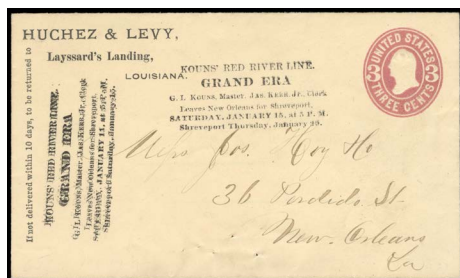 HUCHEZ & LEVY,
Layssard's Landing,
LOUISIANA.
If not delivered within 10 days, to be returned to
KOUNS' RED RIVER LINE.
GRAND ERA
G. L. KOUNS, Master. JAS. KERR JR., Clerk
Leaves New Orleans for Shreveport,
SATURDAY, JANUARY 15, at 5 P. M.
Shreveport Thursday, January 20.
KOUNS' RED RIVER LINE.
GRAND ERA
G. L. KOUNS, Master. JAS. KERR JR., Clerk
Leaves New Orleans for Shreveport,
UNITED STATES
3 3
THREE CENTS
Jos. Hoy
36 Perdido St
New Orleans
La